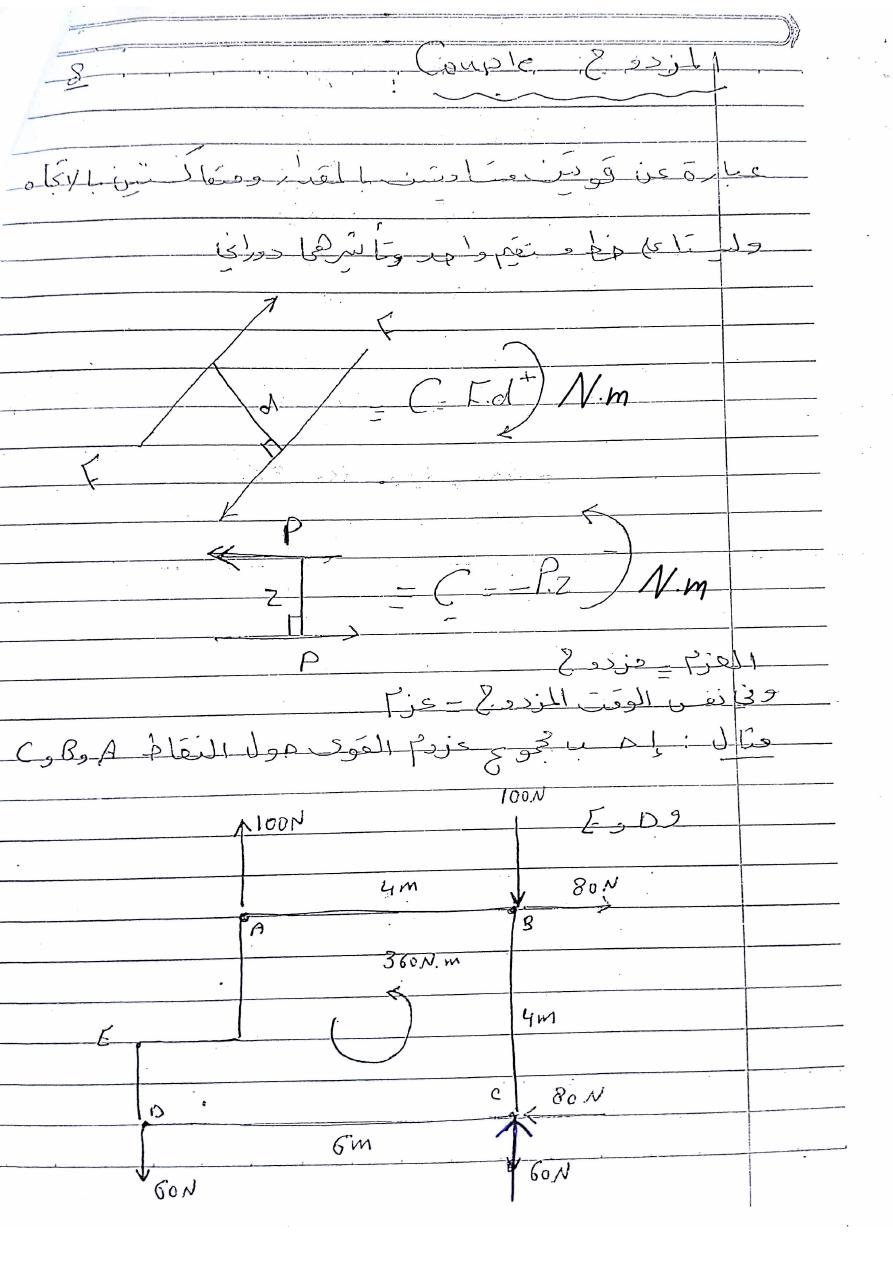 المزدوج Couple :
8
عبارة عن قوتين متساويتين بالمقدار ومتعاكستين بالاتجاه
وليستا على خط مستقيم واحد وتأثيرهما دوراني
F
d
F
= C = F.d + N.m
P
z
P
= C = -P.z - N.m
العزم = مزدوج
وفي نفس الوقت المزدوج = عزم
مثال : إحسب مجموع عزوم القوى حول النقاط A و B و C
و D و E
100N
100N
4m
80N
A
B
360N.m
4m
E
C
80N
D
6m
60N
60N